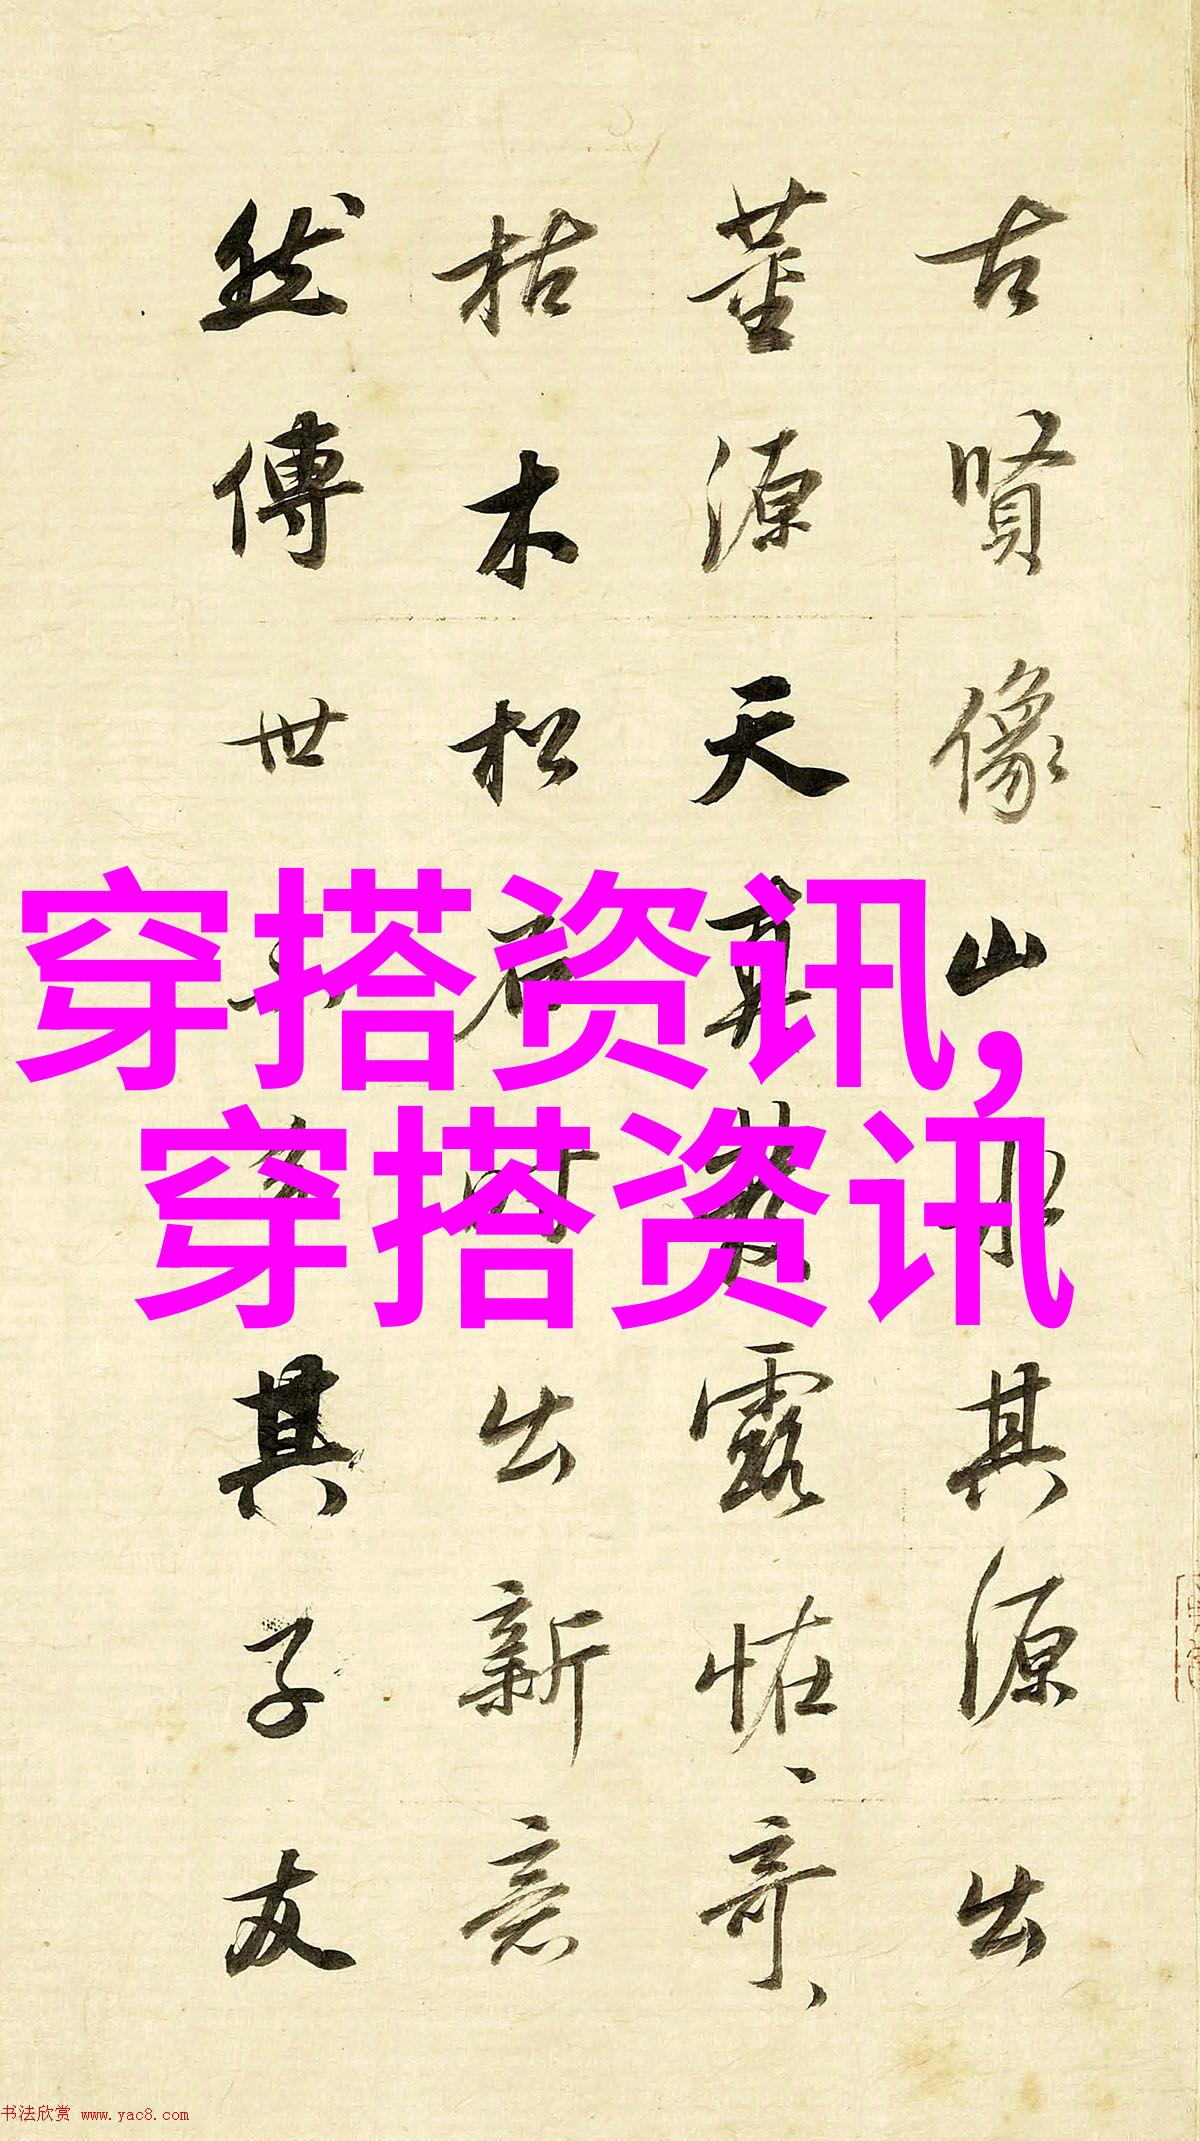 古賢像山水其源出
董源天真發露怪奇
枯木松石時出新意
然傳世不多其子友
穿搭资讯,
穿搭资讯
书法欣赏 www.yac8.com